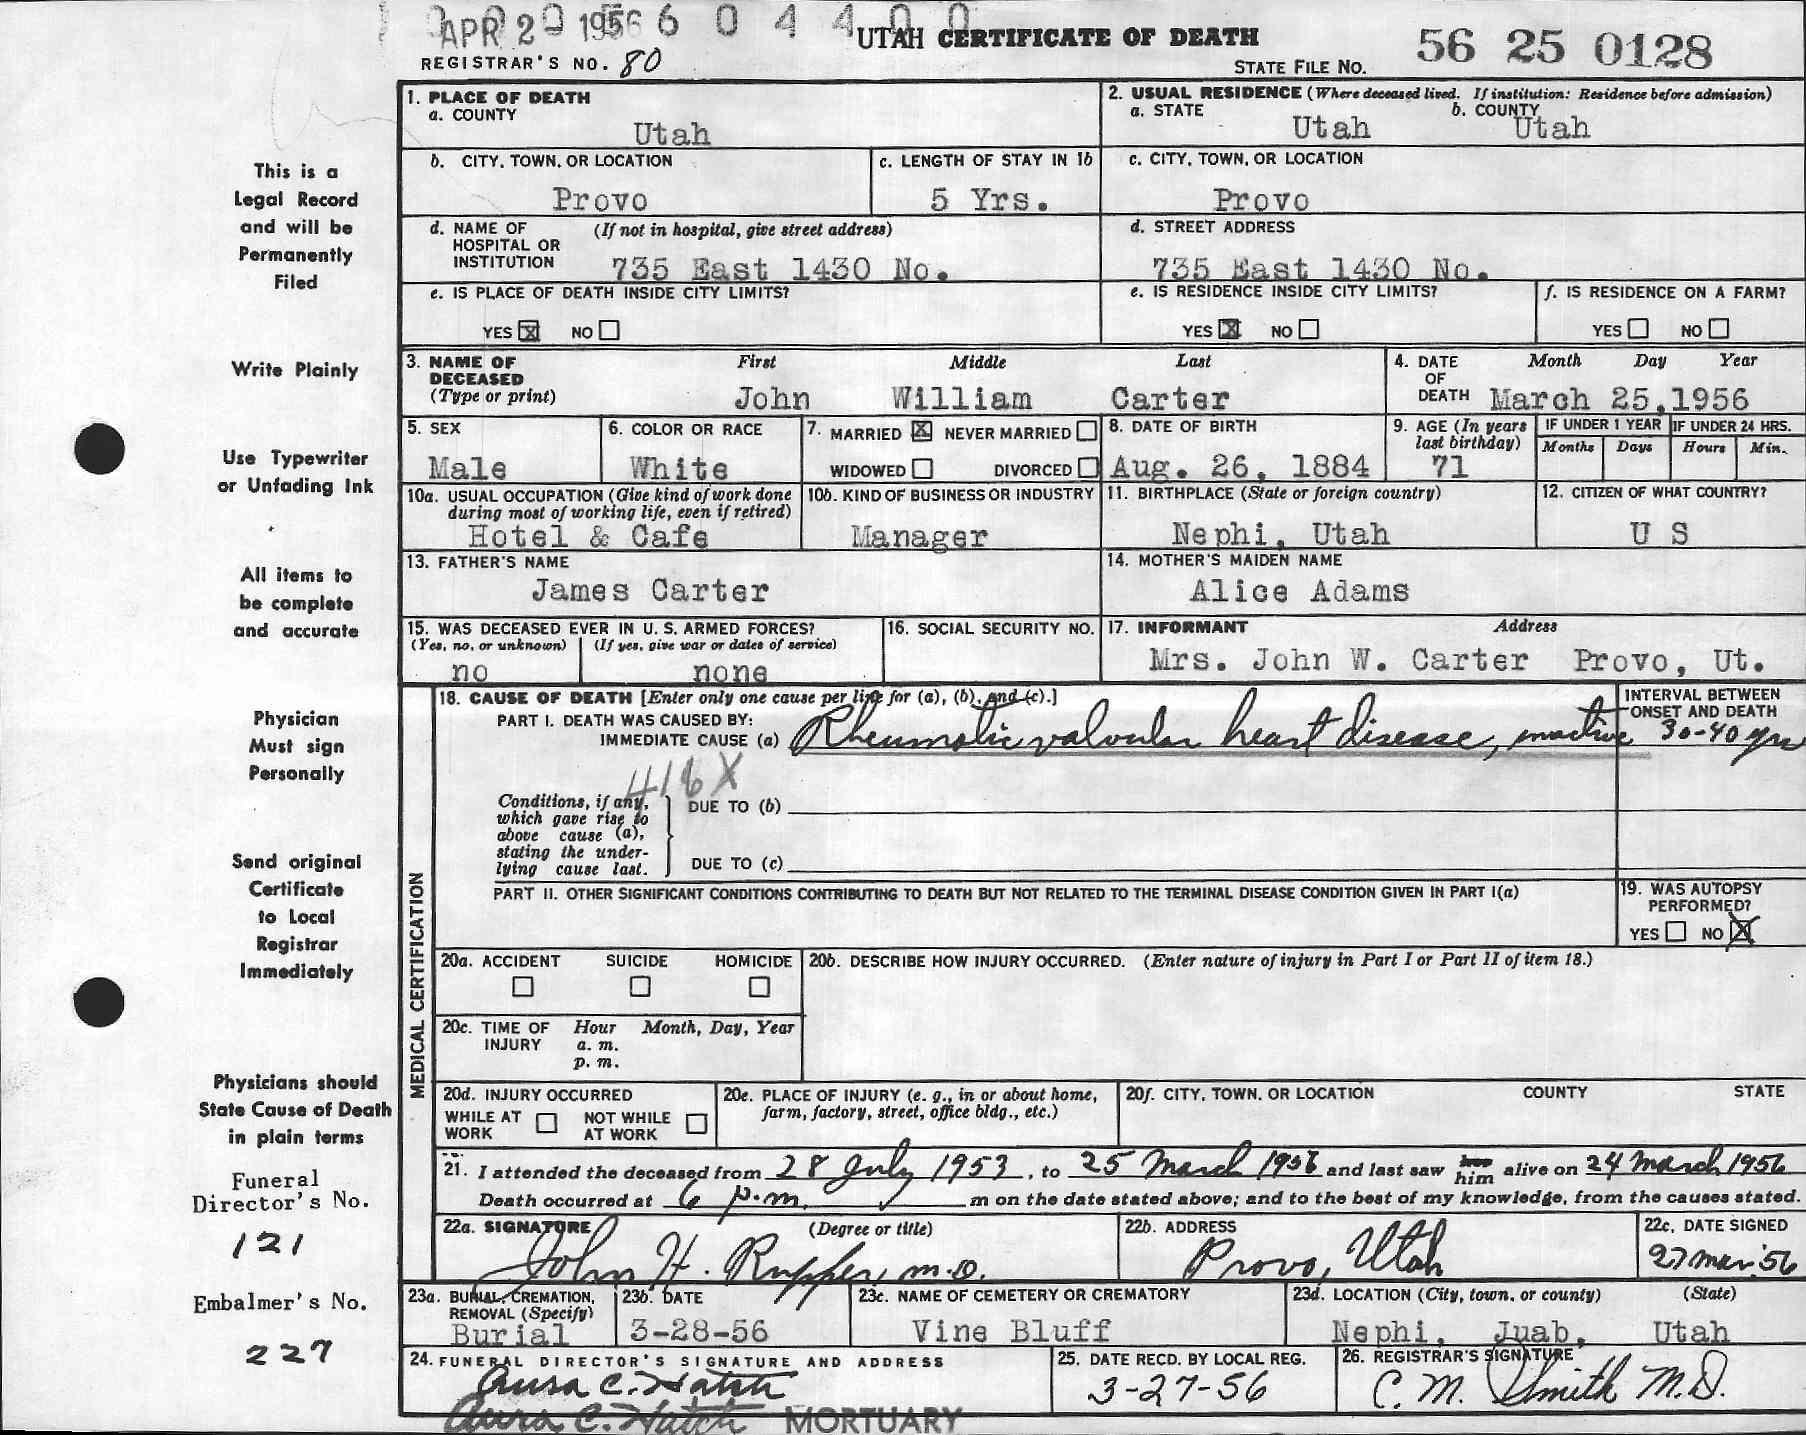 APR 2 1956 6 0 4 4 0 0
UTAH CERTIFICATE OF DEATH
56 25 0128
REGISTRAR'S NO. 80
STATE FILE NO.
1. PLACE OF DEATH
a. COUNTY
Utah
2. USUAL RESIDENCE (Where deceased lived. If institution: Residence before admission)
a. STATE b. COUNTY
Utah Utah
b. CITY, TOWN, OR LOCATION
Provo
c. LENGTH OF STAY IN 1b
5 Yrs.
c. CITY, TOWN, OR LOCATION
Provo
d. NAME OF (If not in hospital, give street address)
HOSPITAL OR
INSTITUTION 735 East 1430 No.
d. STREET ADDRESS
735 East 1430 No.
e. IS PLACE OF DEATH INSIDE CITY LIMITS?
YES X NO
e. IS RESIDENCE INSIDE CITY LIMITS?
YES X NO
f. IS RESIDENCE ON A FARM?
YES NO
3. NAME OF First Middle Last
DECEASED
(Type or print) John William Carter
4. DATE Month Day Year
OF
DEATH March 25,1956
5. SEX
Male
6. COLOR OR RACE
White
7. MARRIED X NEVER MARRIED
WIDOWED DIVORCED
8. DATE OF BIRTH
Aug. 26, 1884
9. AGE (In years
last birthday)
71
IF UNDER 1 YEAR
Months Days
IF UNDER 24 HRS.
Hours Min.
10a. USUAL OCCUPATION (Give kind of work done
during most of working life, even if retired)
Hotel & Cafe
10b. KIND OF BUSINESS OR INDUSTRY
Manager
11. BIRTHPLACE (State or foreign country)
Nephi, Utah
12. CITIZEN OF WHAT COUNTRY?
U S
13. FATHER'S NAME
James Carter
14. MOTHER'S MAIDEN NAME
Alice Adams
15. WAS DECEASED EVER IN U. S. ARMED FORCES?
(Yes, no, or unknown) (If yes, give war or dates of service)
no none
16. SOCIAL SECURITY NO.
17. INFORMANT Address
Mrs. John W. Carter Provo, Ut.
MEDICAL CERTIFICATION
18. CAUSE OF DEATH [Enter only one cause per line for (a), (b), and (c).]
PART I. DEATH WAS CAUSED BY:
IMMEDIATE CAUSE (a) Rheumatic valvular heart disease, inactive
INTERVAL BETWEEN
ONSET AND DEATH
30-40 yrs
416X
Conditions, if any,
which gave rise to
above cause (a),
stating the under-
lying cause last.
DUE TO (b)
DUE TO (c)
PART II. OTHER SIGNIFICANT CONDITIONS CONTRIBUTING TO DEATH BUT NOT RELATED TO THE TERMINAL DISEASE CONDITION GIVEN IN PART I(a)
19. WAS AUTOPSY
PERFORMED?
YES NO X
20a. ACCIDENT SUICIDE HOMICIDE
20b. DESCRIBE HOW INJURY OCCURRED. (Enter nature of injury in Part I or Part II of item 18.)
20c. TIME OF Hour Month, Day, Year
INJURY a. m.
p. m.
20d. INJURY OCCURRED
WHILE AT NOT WHILE
WORK AT WORK
20e. PLACE OF INJURY (e. g., in or about home,
farm, factory, street, office bldg., etc.)
20f. CITY, TOWN, OR LOCATION COUNTY STATE
21. I attended the deceased from 28 July 1953, to 25 March 1956 and last saw her him alive on 24 March 1956
Death occurred at 6 p.m. m on the date stated above; and to the best of my knowledge, from the causes stated.
22a. SIGNATURE (Degree or title)
John H. Rupper, M.D.
22b. ADDRESS
Provo, Utah
22c. DATE SIGNED
27 Mar '56
23a. BURIAL, CREMATION,
REMOVAL (Specify)
Burial
23b. DATE
3-28-56
23c. NAME OF CEMETERY OR CREMATORY
Vine Bluff
23d. LOCATION (City, town, or county) (State)
Nephi, Juab, Utah
24. FUNERAL DIRECTOR'S SIGNATURE AND ADDRESS
Aura C. Hatch
Aura C. Hatch MORTUARY
25. DATE RECD. BY LOCAL REG.
3-27-56
26. REGISTRAR'S SIGNATURE
C. M. Smith M.D.
This is a
Legal Record
and will be
Permanently
Filed
Write Plainly
Use Typewriter
or Unfading Ink
All items to
be complete
and accurate
Physician
Must sign
Personally
Send original
Certificate
to Local
Registrar
Immediately
Physicians should
State Cause of Death
in plain terms
Funeral
Director's No.
121
Embalmer's No.
227